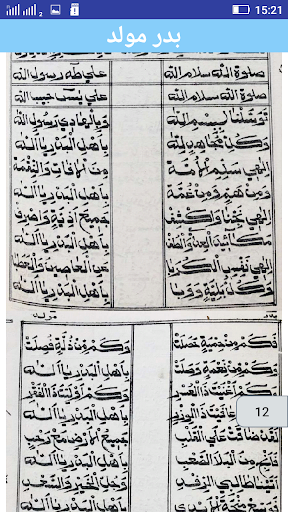 15:21
بدر مولد
صلوة الله سلام الله على طه رسول الله
صلوة الله سلام الله على يس حبيب الله
توسلنا ببسم الله وبالهادي رسول الله
وكل مجاهد لله باهل البدر يا الله
الهي سلم الامة من الافات والنقمة
ومن هم ومن غمة باهل البدر يا الله
الهي نجنا واكشف جميع اذية واصرف
مكائد العدا والطف باهل البدر يا الله
الهي نفس الكربا من العاصين والعطبا
وكل بلية ووبا باهل البدر يا الله
فكم من رحمة حصلت وكم من ذلة فصلت
وكم من نعمة وصلت باهل البدر يا الله
وكم اغنيت ذا العمر وكم اوليت ذا الفقر
وكم عافيت ذا الوزر باهل البدر يا الله
12
لقد ضاقت على القلب جميع الارض مع رحب
فانج من البلا الصعب باهل البدر يا الله
اتينا طالبي الرفد وجل الخير والسعد